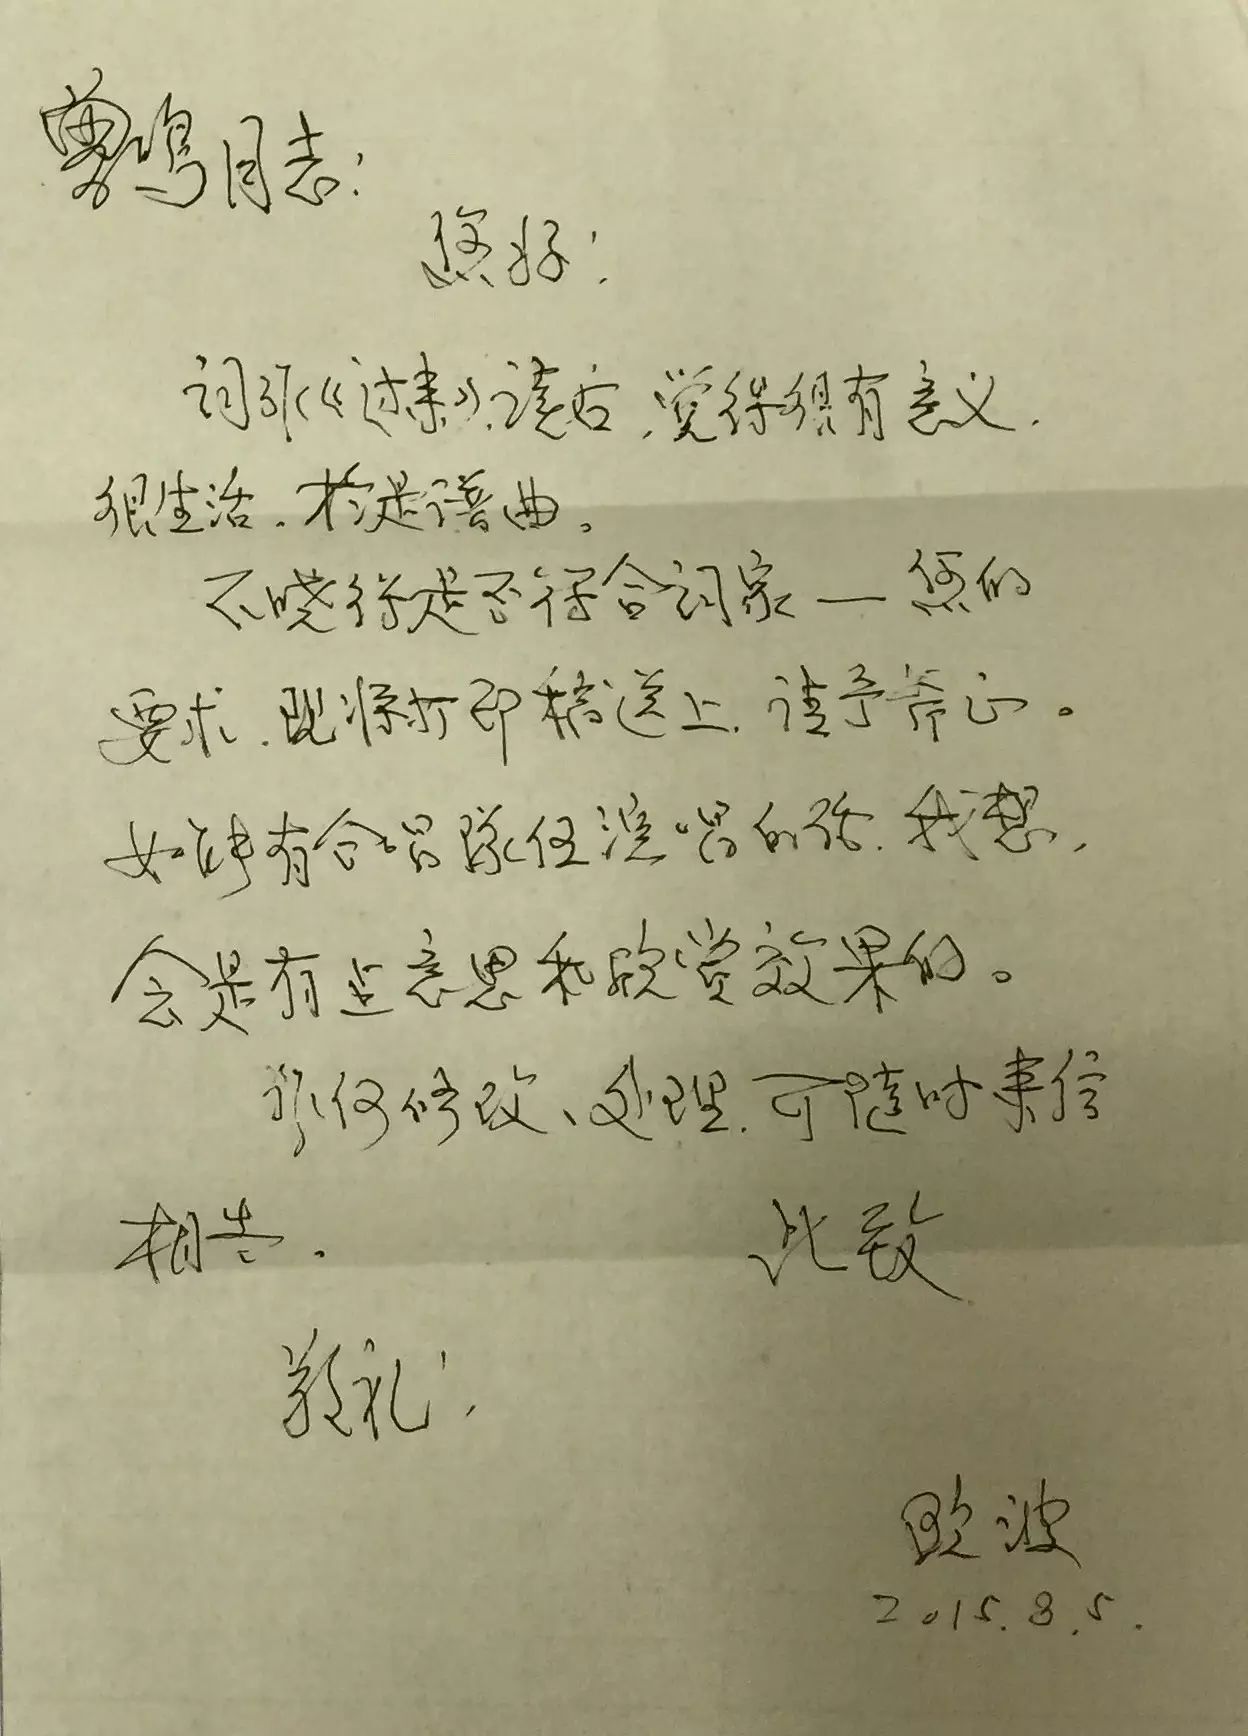 鸣同志:
您好!
词作《过来》读后,觉得很有意义.
很生活.于是谱曲。
不晓得是否符合词家—您的
要求.现将打印稿送上.请予斧正。
如能有合唱队任演唱的话.我想,
会是有点意思和欣赏效果的。
作何修改、处理.可随时来信
相告. 此致
敬礼!
欧波
2015.8.5.